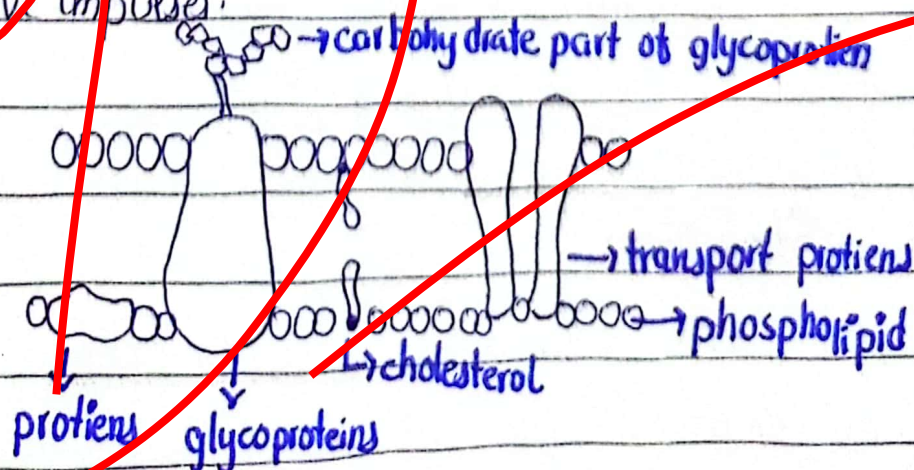 impulses.
→carbohydrate part of glycoprotien
→transport protiens
→phospholipid
→cholesterol
protiens
glycoproteins